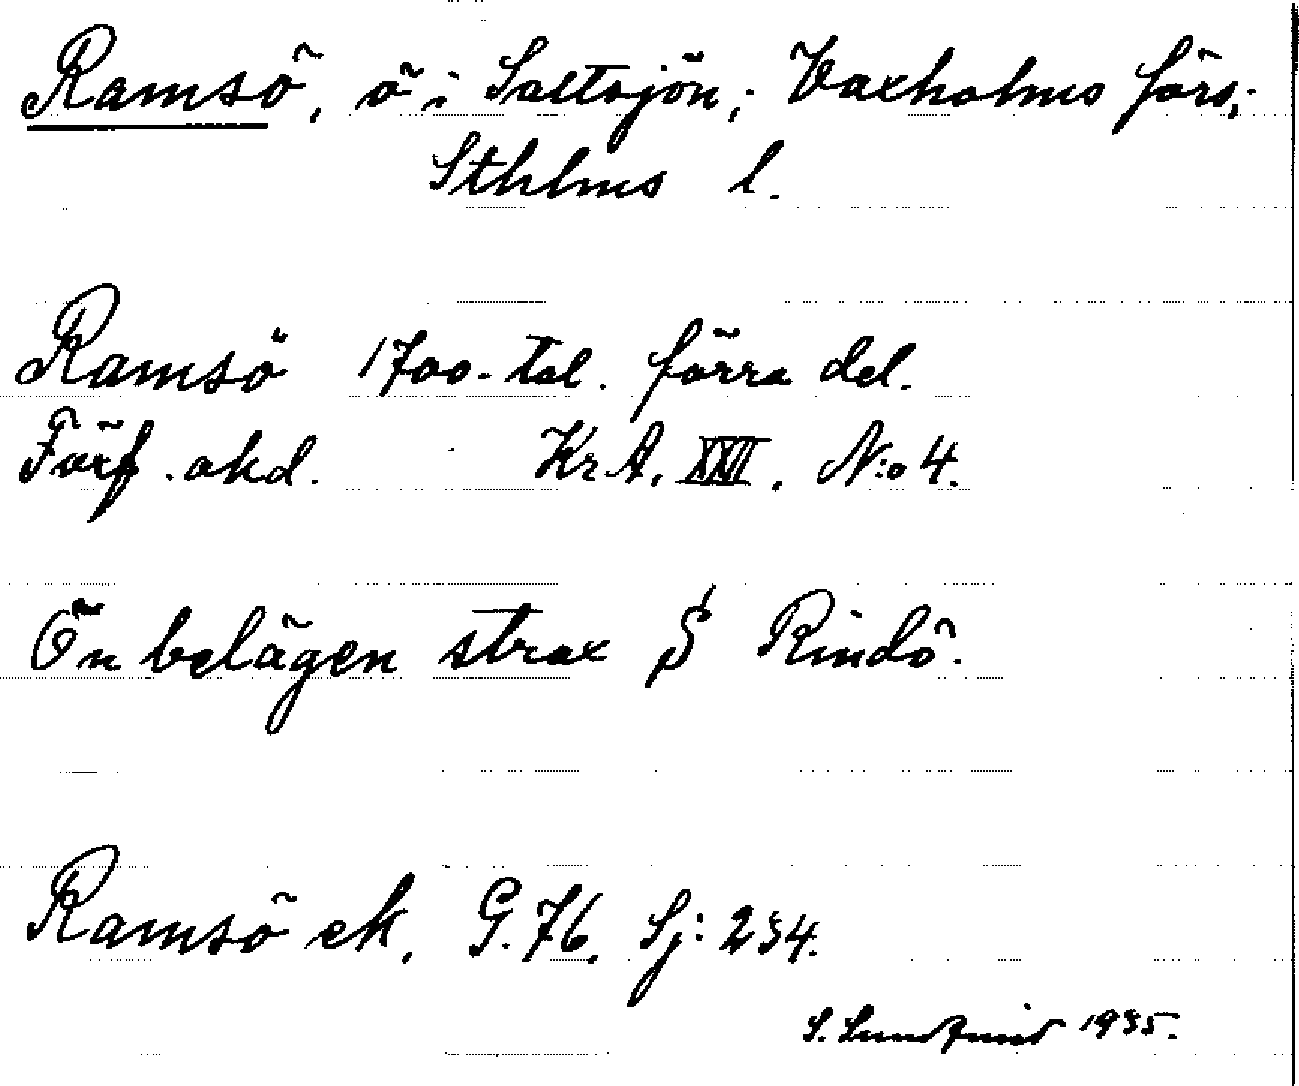 Ramsö, ö i Saltsjön; Vaxholms förs;
Sthlms l.
Ramsö 1700-tal. förra del.
Förf. okd. Kr A. XXII. N:o 4.
Ön belägen strax S Rindö.
Ramsö ek. G. 76. Sj: 234.
S. Lundqvist 1935.